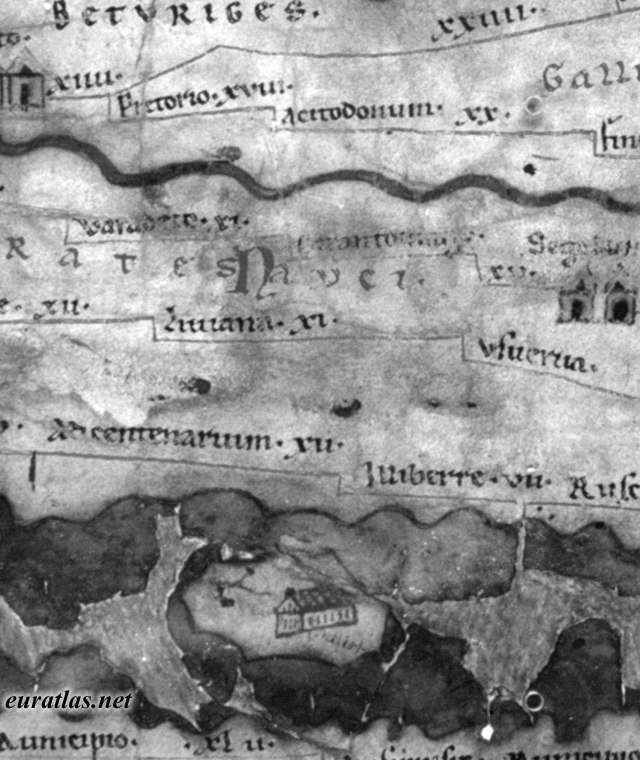 BETVRIGES.
xxiiii.
xiiii.
Pretorio. xviii.
Acitodonum. xx.
fin
Varadeto. xi.
R A T E S N A V C I.
xv.
e. xii.
Liviana. xi.
Vsuerva.
Ad centenarium. xii.
Illiberre. vii. Rusc
euratlas.net
Municipio. xl ii.